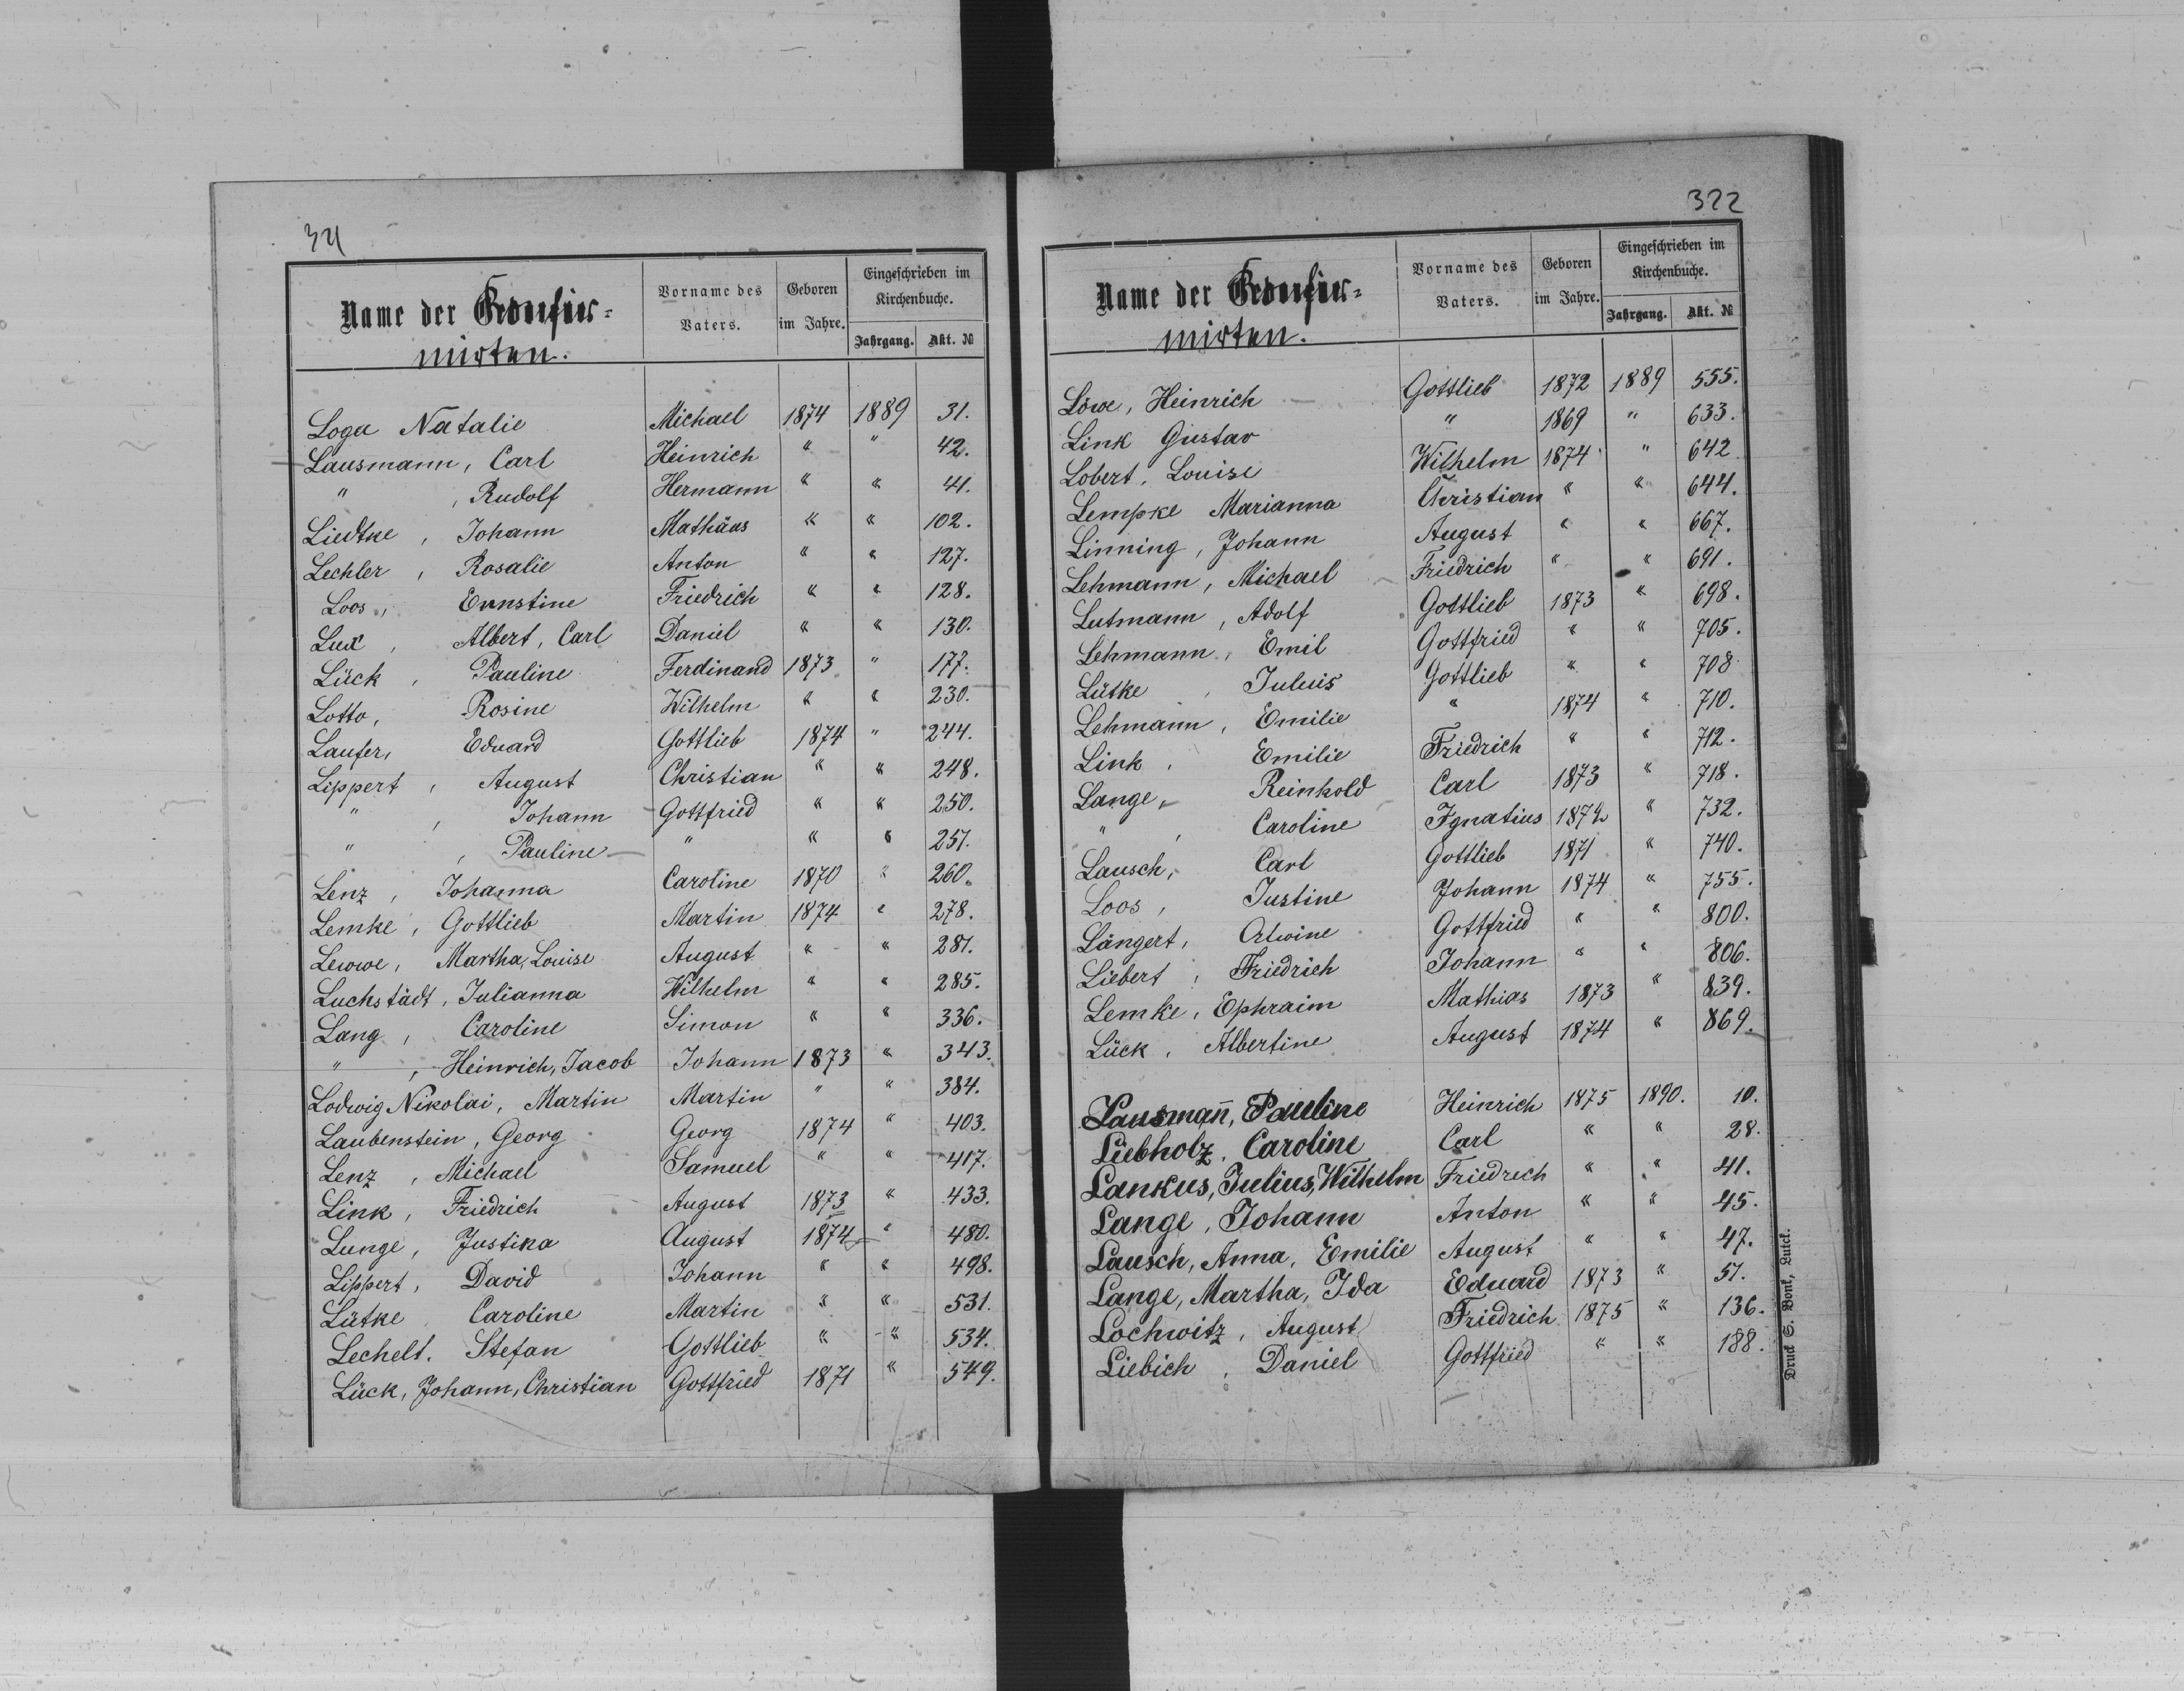 321
Name der Confir-
mirten.
Vorname des Vaters.
Geboren im Jahre.
Eingeschrieben im Kirchenbuche.
Jahrgang. Akt. №
Loga Natalie Michael 1874 1889 31.
Lausmann, Carl Heinrich " " 42.
" , Rudolf Hermann " " 41.
Liedtke, Johann Mathäus " " 102.
Lechler, Rosalie Anton " " 127.
Loos, Ernstine Friedrich " " 128.
Lux, Albert, Carl Daniel " " 130.
Lück, Pauline Ferdinand 1873 " 177.
Lotto, Rosine Wilhelm " " 230.
Laufer, Eduard Gottlieb 1874 " 244.
Lippert, August Christian " " 248.
" , Johann Gottfried " " 250.
" , Pauline " " " 251.
Lenz, Johanna Caroline 1870 " 260.
Lemke, Gottlieb Martin 1874 " 278.
Lewwe, Martha, Louise August " " 281.
Luchstädt, Julianna Wilhelm " " 285.
Lang, Caroline Simon " " 336.
" , Heinrich, Jacob Johann 1873 " 343.
Lodwig Nikolai, Martin Martin " " 384.
Laubenstein, Georg Georg 1874 " 403.
Lenz, Michael Samuel " " 417.
Link, Friedrich August 1873 " 433.
Lunge, Justina August 1874 " 480.
Lippert, David Johann " " 498.
Lütke, Caroline Martin " " 531.
Lechelt. Stefan Gottlieb " " 534.
Lück, Johann, Christian Gottfried 1871 " 549.
322
Name der Confir-
mirten.
Vorname des Vaters.
Geboren im Jahre.
Eingeschrieben im Kirchenbuche.
Jahrgang. Akt. №
Löwe, Heinrich Gottlieb 1872 1889 555.
Link Gustav " 1869 " 633.
Lobert, Louise Wilhelm 1874 " 642
Lempke Marianna Christian " " 644.
Linning, Johann August " " 667.
Lehmann, Michael Friedrich " " 691.
Lutmann, Adolf Gottlieb 1873 " 698.
Lehmann, Emil Gottfried " " 705.
Lütke, Julius Gottlieb " " 708
Lehmann, Emilie " 1874 " 710.
Link, Emilie Friedrich " " 712.
Lange, Reinhold Carl 1873 " 718.
" , Caroline Ignatius 1872 " 732.
Lausch, Carl Gottlieb 1871 " 740.
Loos, Justine Johann 1874 " 755.
Längert, Alwine Gottfried " " 800.
Liebert, Friedrich Johann " " 806.
Lemke, Ephraim Mathias 1873 " 839.
Lück, Albertine August 1874 " 869.
Lausmañ, Pauline Heinrich 1875 1890. 10.
Liebholz, Caroline Carl " " 28.
Lankus, Julius, Wilhelm Friedrich " " 41.
Lange, Johann Anton " " 45.
Lausch, Anna, Emilie August " " 47.
Lange, Martha, Ida Eduard 1873 " 51.
Lochwitz, August Friedrich 1875 " 136.
Liebich, Daniel Gottfried " " 188.
Druck S. Bonk, Lutck.